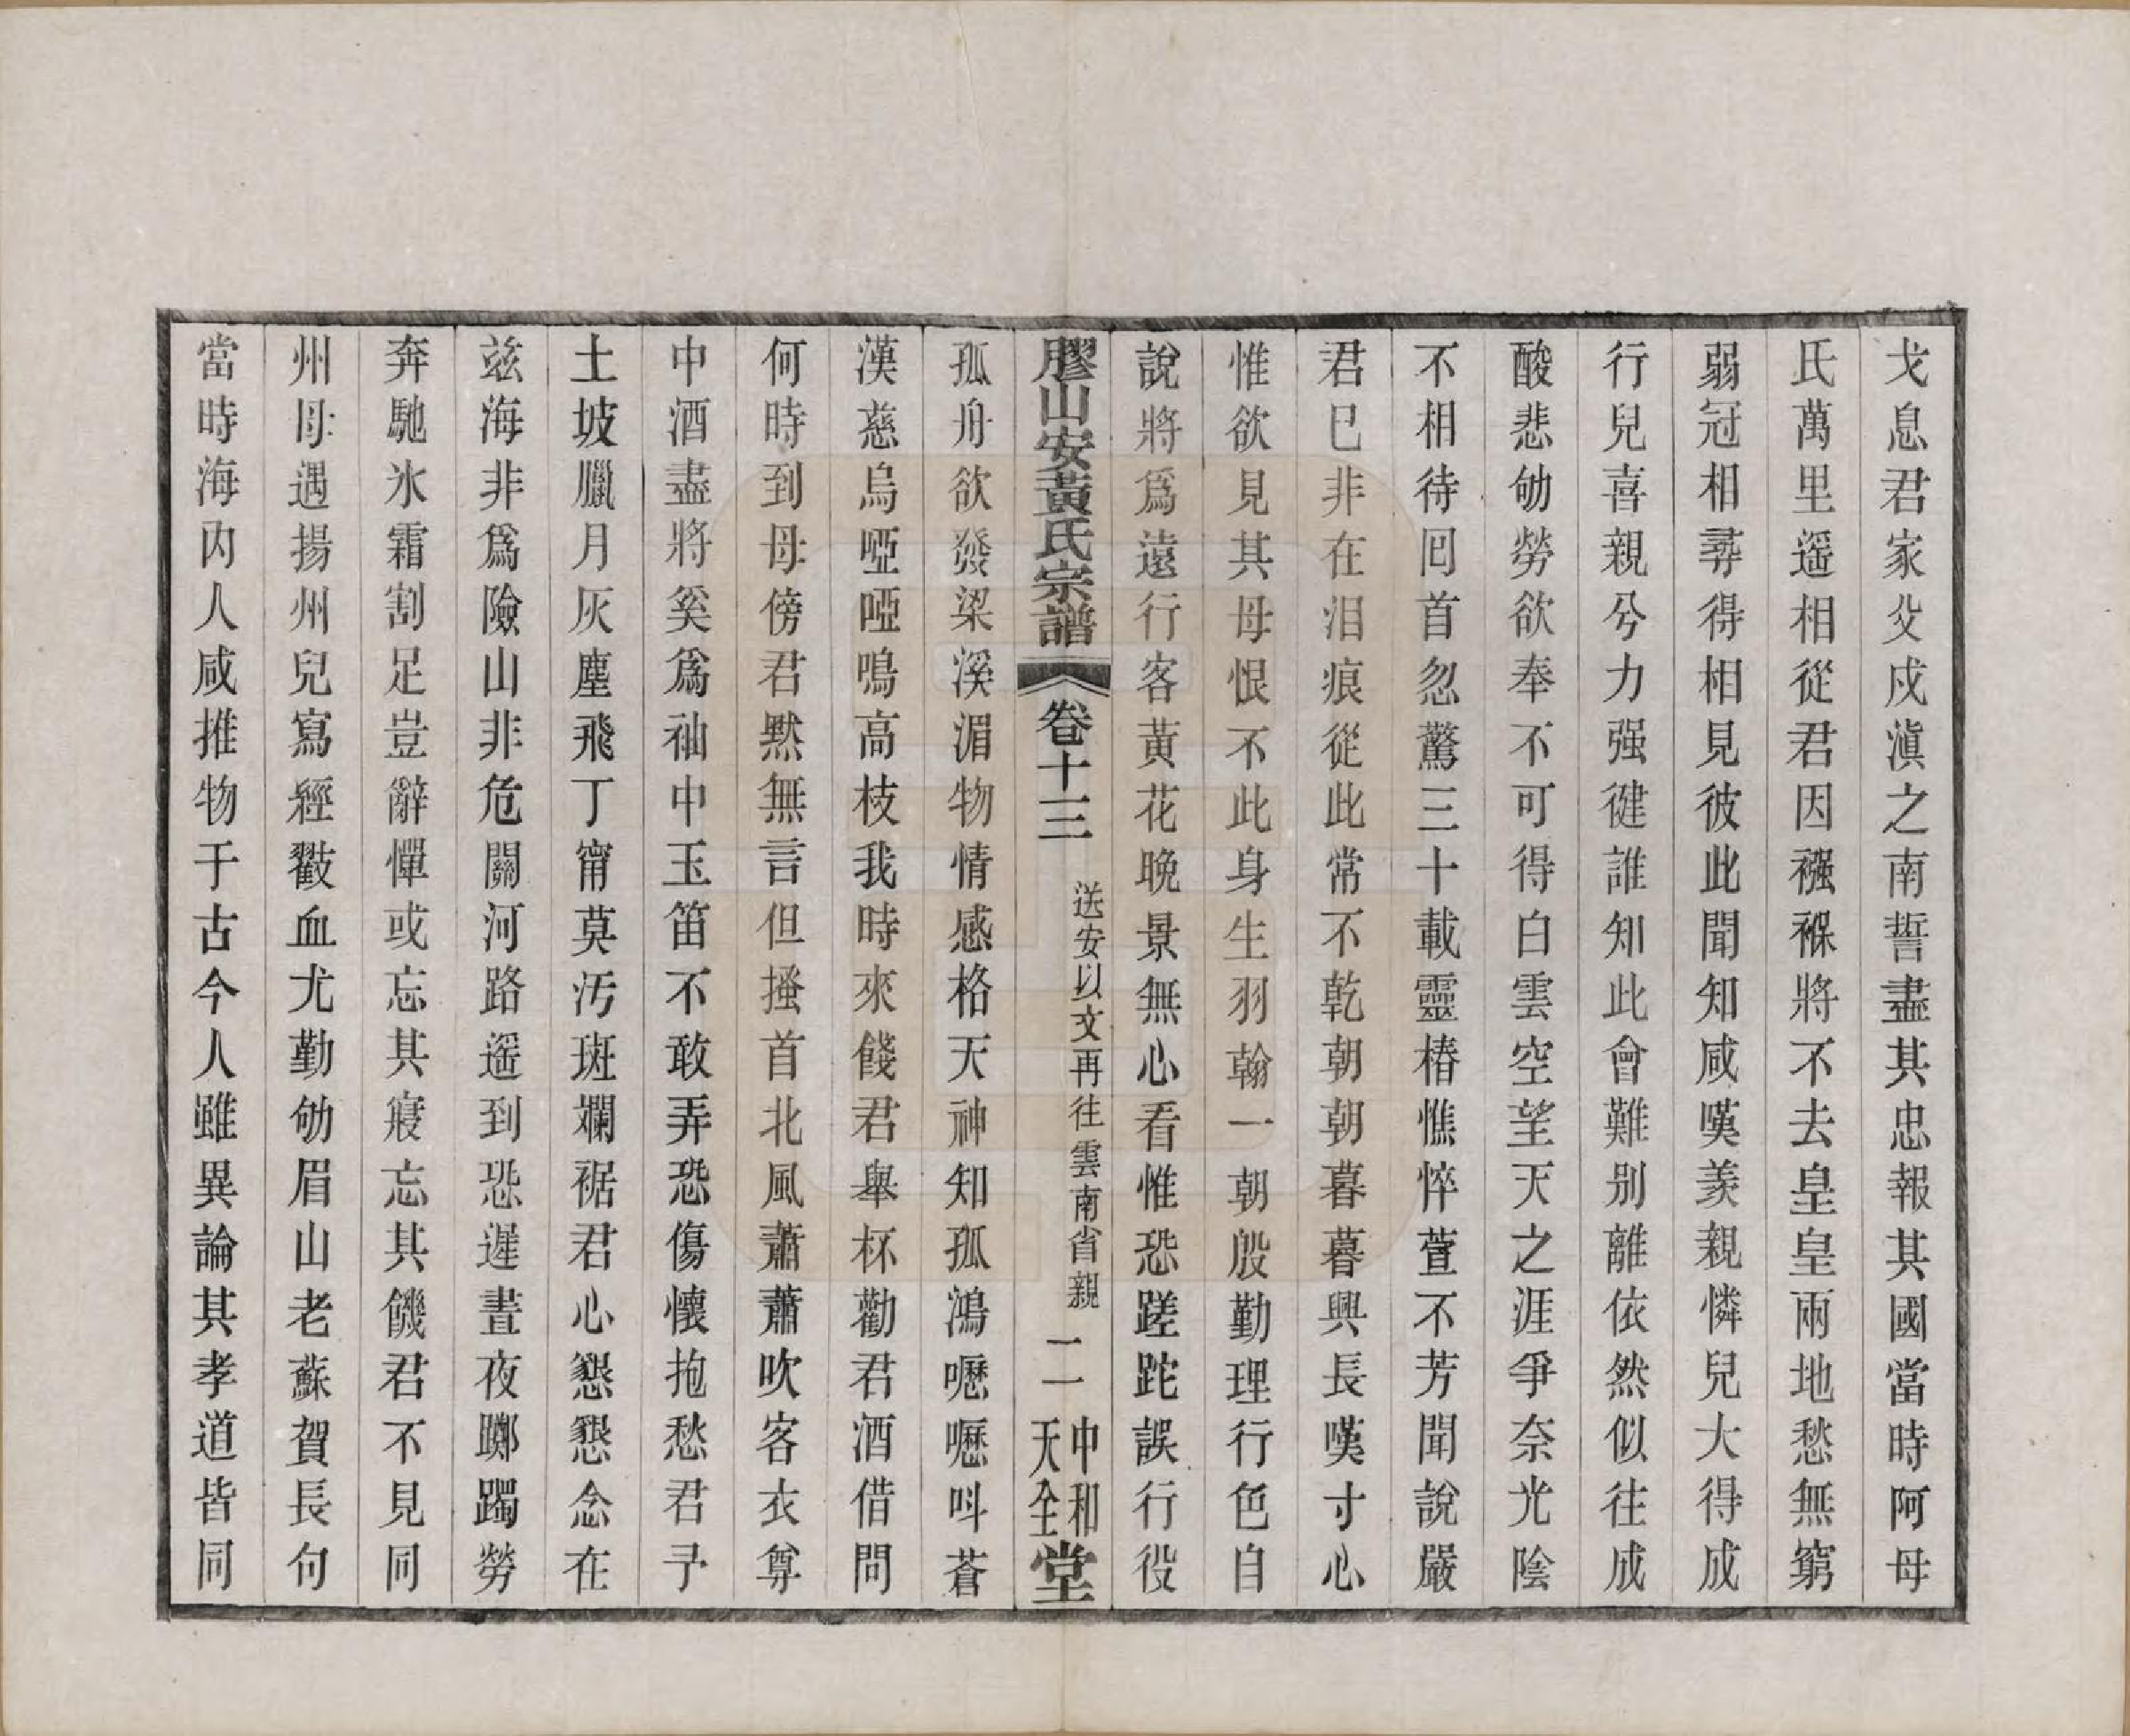 戈息君家父戍滇之南誓盡其忠報其國當時阿母
氏萬里遥相從君因襁褓將不去皇皇兩地愁無窮
弱冠相尋得相見彼此聞知咸嘆羨親憐兒大得成
行兒喜親兮力强健誰知此會難别離依然似往成
酸悲劬勞欲奉不可得白雲空望天之涯爭奈光陰
不相待囘首忽驚三十載靈椿憔悴萱不芳聞說嚴
君已非在泪痕從此常不乾朝朝暮暮興長嘆寸心
惟欲見其母恨不此身生羽翰一朝殷勤理行色自
說將爲遠行客黃花晩景無心看惟恐蹉跎誤行役
膠山安黃氏宗譜 卷十三 送安以文再往雲南省親 二 中和 天全 堂
孤舟欲發梁溪湄物情感格天神知孤鴻嚦嚦呌蒼
漢慈烏啞啞鳴高枝我時來餞君舉杯勸君酒借問
何時到母傍君默無言但搔首北風蕭蕭吹客衣尊
中酒盡將奚爲袖中玉笛不敢弄恐傷懷抱愁君子
土坡臘月灰塵飛丁甯莫汚斑斕裾君心懇懇念在
兹海非爲險山非危關河路遥到恐遲晝夜躑躅勞
奔馳氷霜割足豈辭憚或忘其寢忘其饑君不見同
州母遇揚州兒寫經㓨血尤勤劬眉山老蘇賀長句
當時海内人咸推物于古今人雖異論其孝道皆同